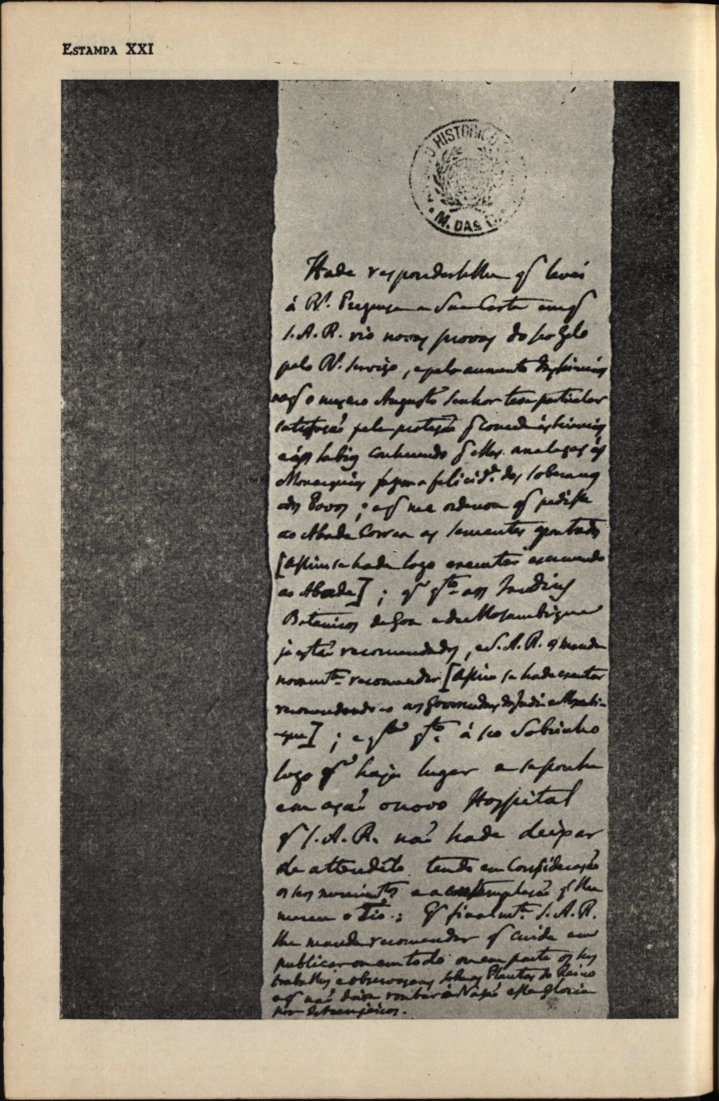 ESTAMPA XXI
HISTORICO
M. DAS
Hade responder-selhe q̃ levei
á R.l Presença a Sua Carta em q̃
S. A. R. vio novas provas do seo zelo
pelo R.l serviço, e pelo aumento das sciencias
nas q̃ o mesmo Augusto Senhor tem particular
satisfação pela proteção q̃ concede ás sciencias
e aos sabios conhecendo q̃
Monarquias a felicid.e dos soberanos
e dos Povos; e q̃ me ordenou q̃ pedisse
ao Abade Correa as sementes apontadas
[Assim se hade logo executar escrevendo
ao Abade]; q̃ q.to aos Jardins
Botanicos de Goa e de Mosambique
já estão recomendados, e S. A. R. os manda
novam.te recomendar [Assim se hade executar
recomendando-o aos Governadores da India e Mosambi-
que]; e q̃ q.to á seo Sobrinho
logo q̃ haja lugar e se ponha
em ação o novo Hospital
q̃ S. A. R. não hade deixar
de attendelo tendo em Consideração
os seos merecim.tos e a contemplação q̃ lhe
merece o Tio.; Q̃ finalm.te S. A. R.
lhe manda recomendar q̃ cuide em
publicar ou em todo ou em parte os seos
trabalhos e observaçoens sobre as Plantas do Reino
e q̃ não deixe roubar á Nação essa Gloria
por Estrangeiros.